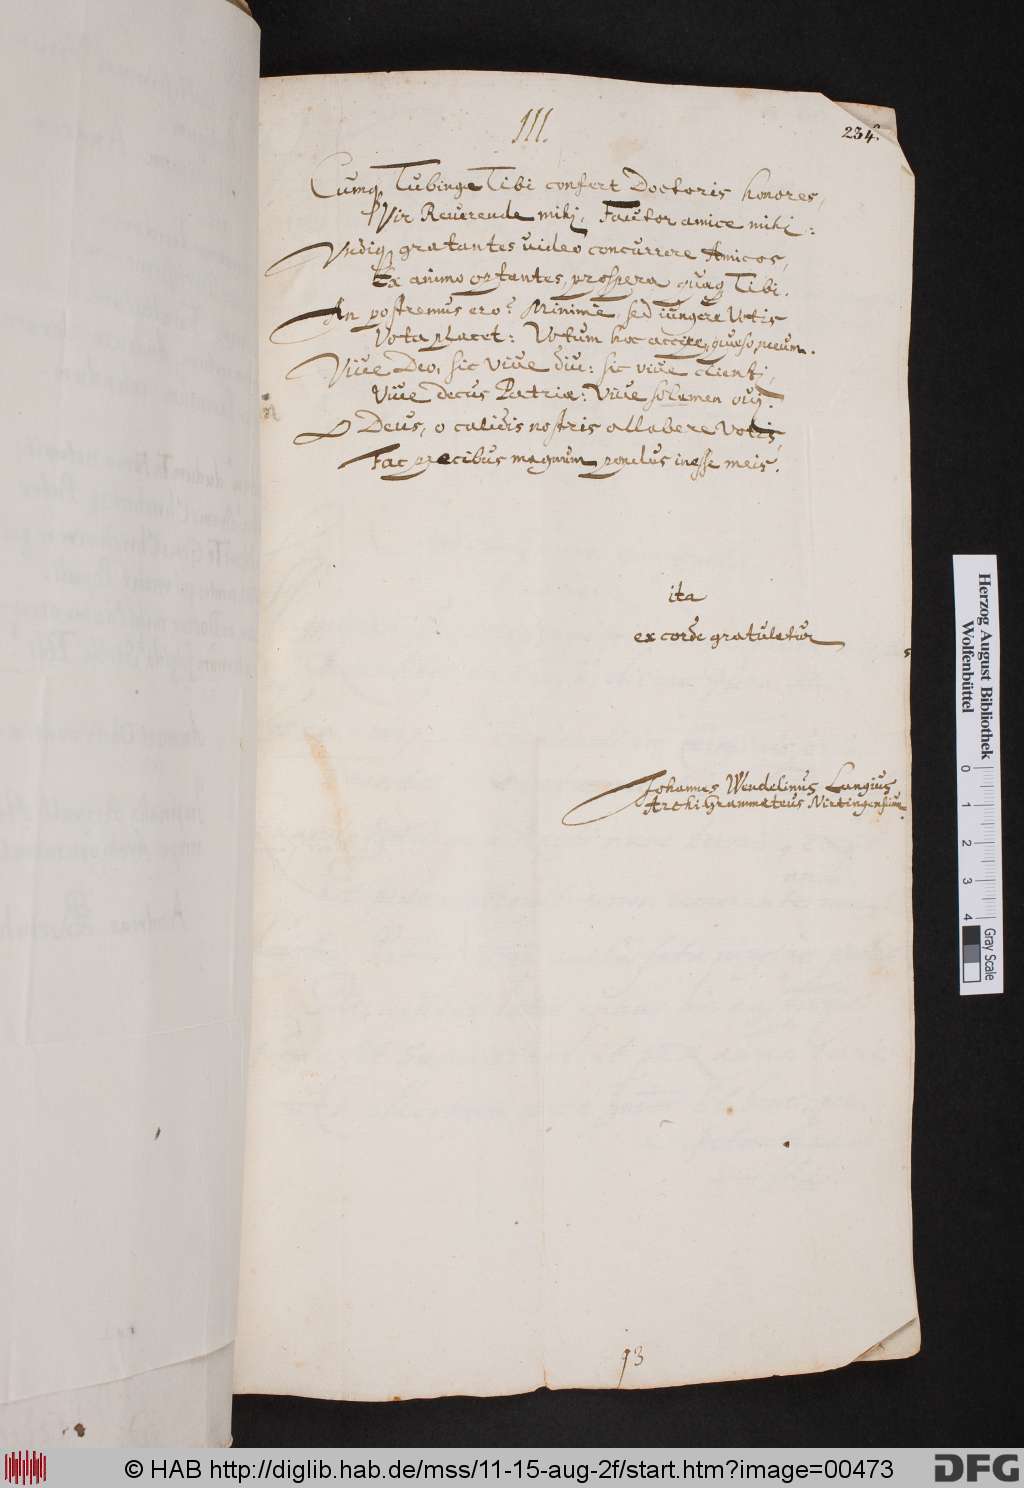 III.
234.
Cumq Tubinga Tibi confert Doctoris honores,
Vir Reverende mihj, Fautor amice mihi:
Vndiq gratantes video concurrere Amicos,
Ex animo optantes, prospera quæq Tibi.
An postremus ero? Minimè, sed iungere Votis
Vota placet: Votum hoc accipe, quæso, meum.
Vive Deo, sic vive diu: sic vive clientj,
Vive decus Patriæ: Vive solamen ovij.
O Deus, o calidis nostris allabere Votis,
Fac præcibus magnum pondus inesse meis.
ita
ex corde gratuletur
Johannes Wendelinus Langius
ArchiGrammateus Nirtingensium.
93
Herzog August Bibliothek
Wolfenbüttel
0 1 2 3 4
Gray Scale
© HAB http://diglib.hab.de/mss/11-15-aug-2f/start.htm?image=00473
DFG